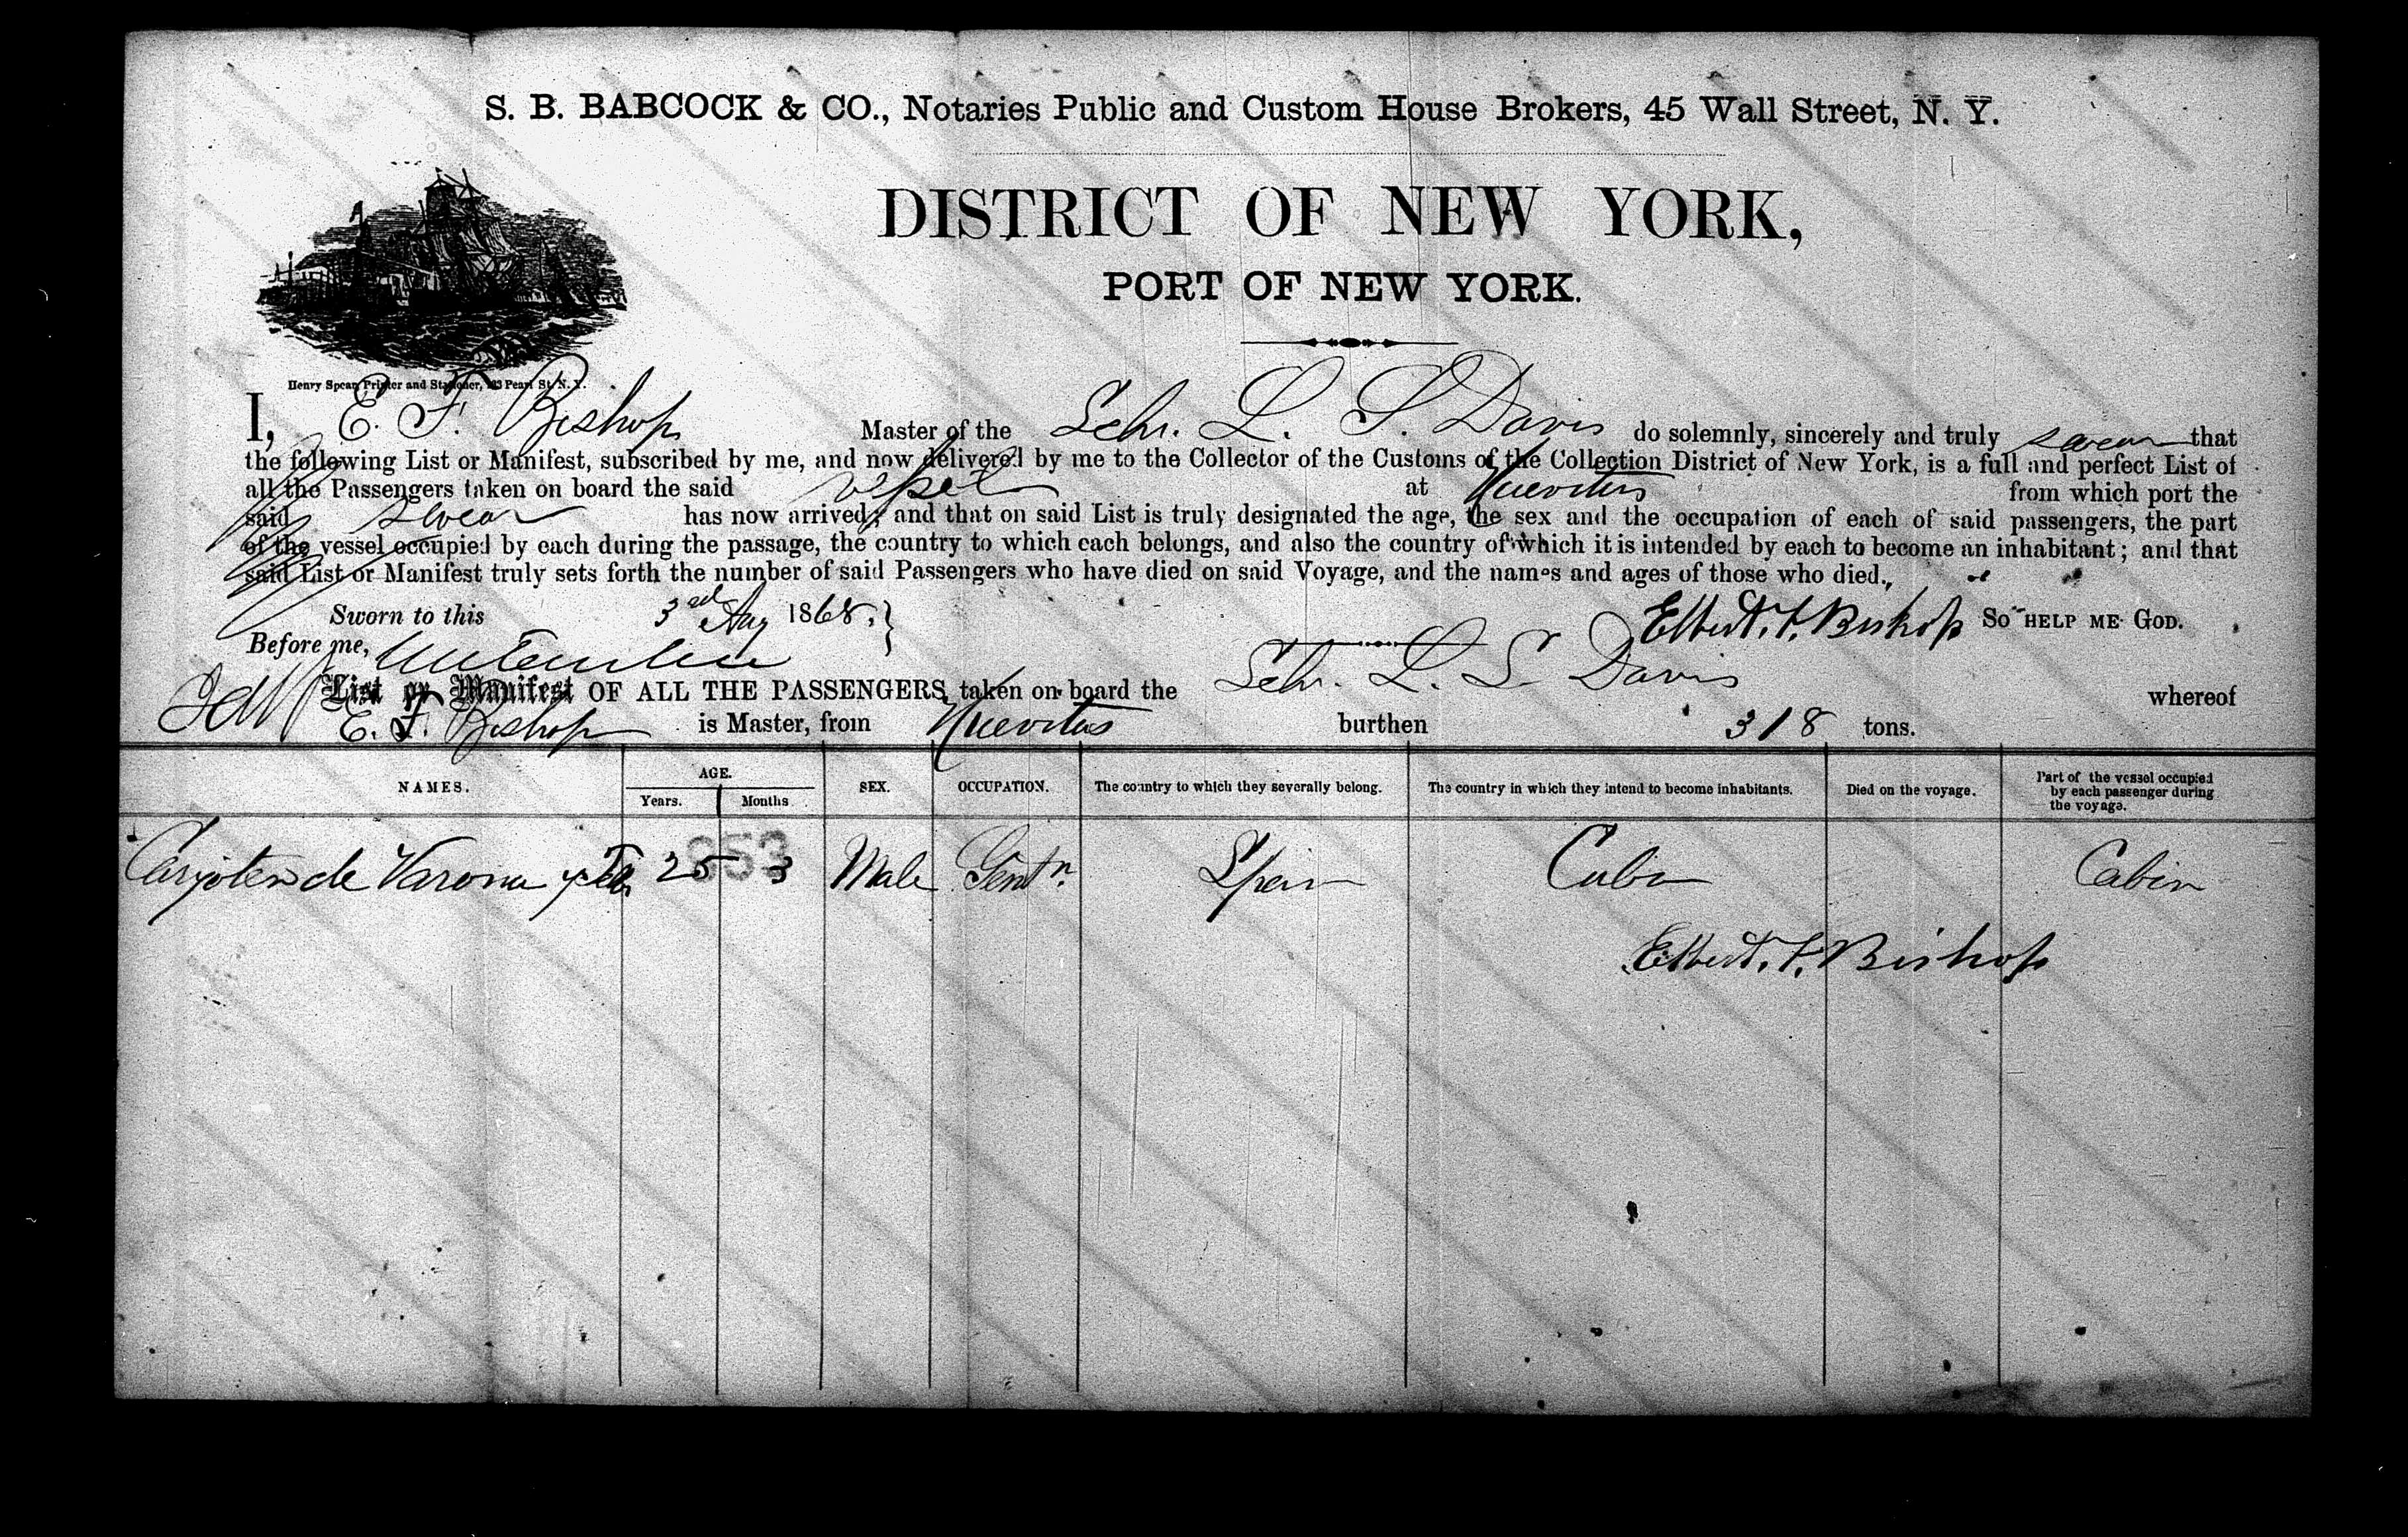 S. B. BABCOCK & CO., Notaries Public and Custom House Brokers, 45 Wall Street, N. Y.
DISTRICT OF NEW YORK,
PORT OF NEW YORK.
Henry Spear, Printer and Stationer, Pearl St. N. Y.
I, E. F. Bishop Master of the Schr. L. S. Davis do solemnly, sincerely and truly swear that
the following List or Manifest, subscribed by me, and now delivered by me to the Collector of the Customs of the Collection District of New York, is a full and perfect List of
all the Passengers taken on board the said vessel at Nuevitas from which port the
said swear has now arrived; and that on said List is truly designated the age, the sex and the occupation of each of said passengers, the part
of the vessel occupied by each during the passage, the country to which each belongs, and also the country of which it is intended by each to become an inhabitant; and that
said List or Manifest truly sets forth the number of said Passengers who have died on said Voyage, and the names and ages of those who died.
Sworn to this 3rd Aug 1868. Elbert. F. Bishop So HELP ME GOD.
Before me,
List or Manifest OF ALL THE PASSENGERS taken on board the Schr. L. S. Davis whereof
E. F. Bishop is Master, from Nuevitas burthen 318 tons.
NAMES. AGE. Years. Months SEX. OCCUPATION. The country to which they severally belong. The country in which they intend to become inhabitants. Died on the voyage. Part of the vessel occupied by each passenger during the voyage.
de Varona y 25 3 Male Gentn. Spain Cuba Cabin
353
Elbert. F. Bishop